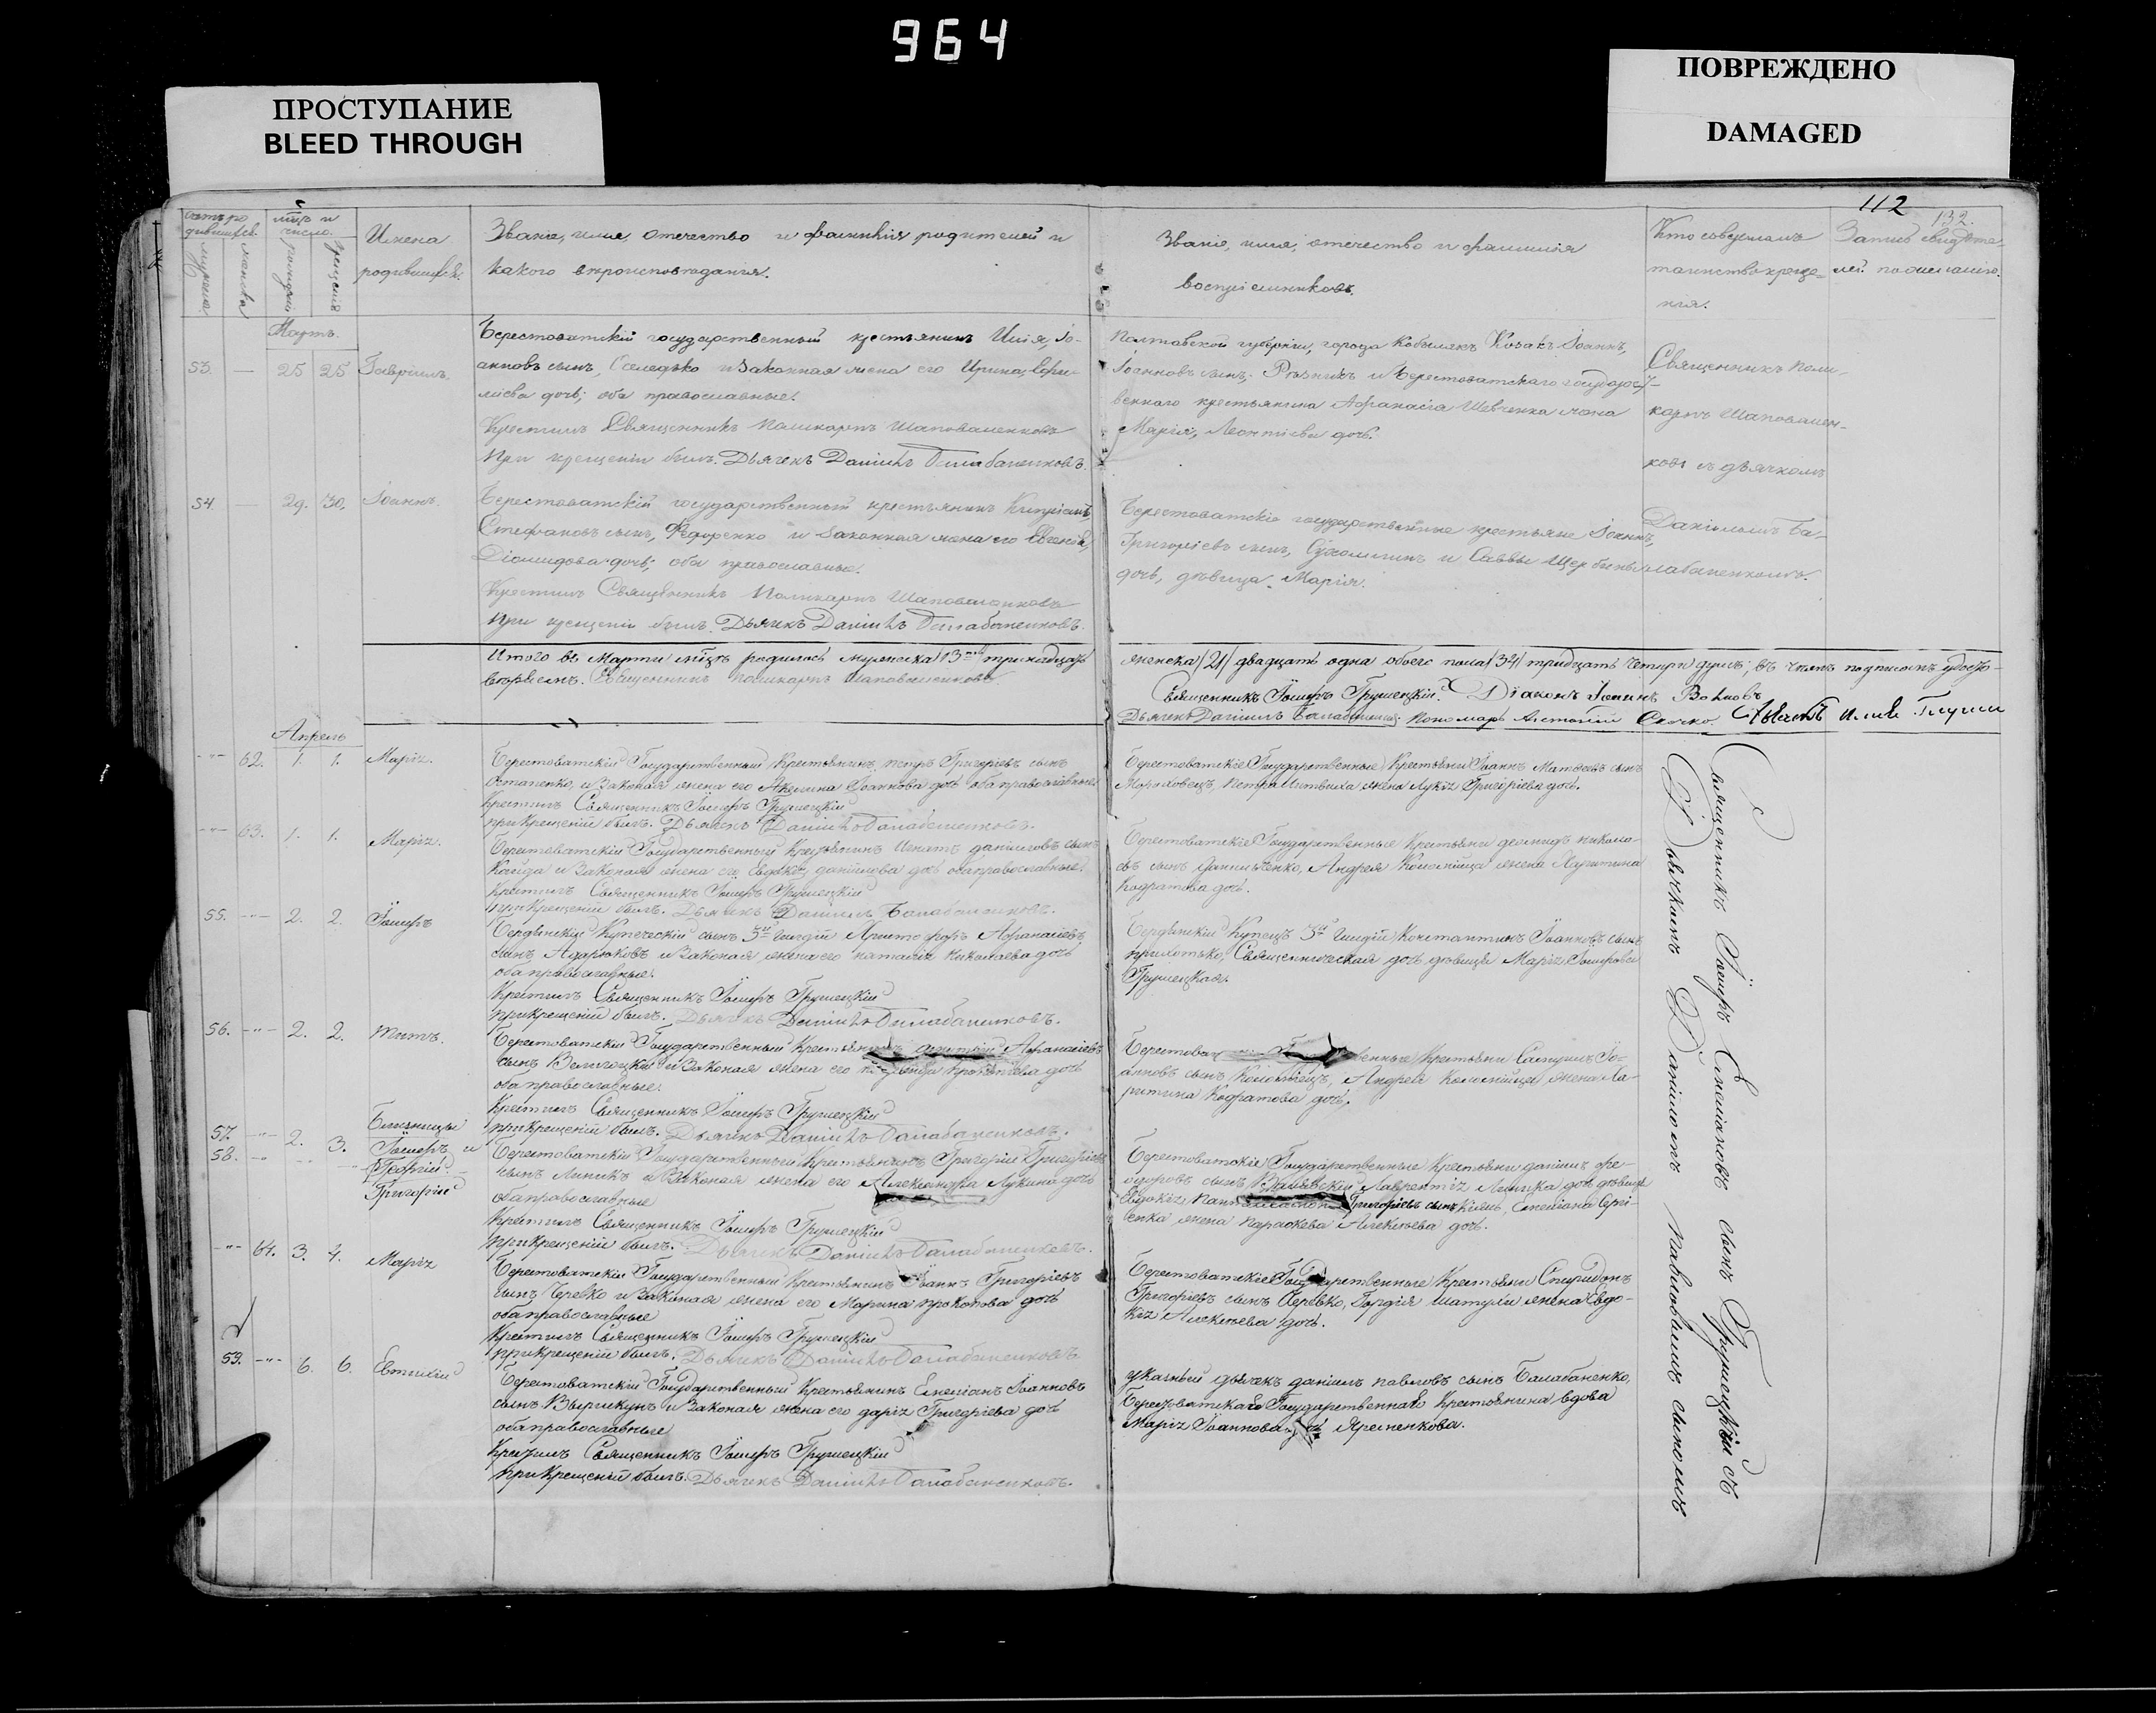 964
ПРОСТУПАНИЕ
BLEED THROUGH
ПОВРЕЖДЕНО
DAMAGED
112
132.
Имена
родившихся.
Званіе, имя, отечество и фамилія родителей и
какого вѣроисповѣданія.
Званіе, имя, отечество и фамилія
воспріемниковъ.
Кто совершалъ
таинство креще-
нія.
Мартъ.
53. — 25 25 Гавріилъ.
Берестоватскій государственный крестьянинъ Илія, Іо-
анновъ сынъ, Оселедько и законная жена его Ирина,
дочь; оба православные.
Крестилъ Священникъ Поликарпъ Шаповаленковъ
При крещеніи былъ. Дьячекъ Даніилъ Балабаненковъ.
Полтавской губерніи, города Кобылякъ Козакъ Іоаннъ,
Іоанновъ сынъ, Рѣзникъ и Берестоватскаго государст-
веннаго крестьянина Афанасія Шевченка жена
Марія, Леонтіева дочь.
Священникъ Поли-
карпъ Шаповален-
ковъ съ дьячкомъ
Даніиломъ Ба-
лабаненкомъ.
54. — 29. 30. Іоаннъ.
Берестоватскій государственный крестьянинъ Кипріанъ,
Стефановъ сынъ, Федоренко и законная жена его Евгенія,
Діомидова дочь; оба православные.
Крестилъ Священникъ Поликарпъ Шаповаленковъ
При крещеніи былъ. Дьячекъ Даніилъ Балабаненковъ.
Берестоватскіе государственные крестьяне Іоаннъ,
Григоріевъ сынъ, Сухомлинъ и Саввы Щербины
дочь, дѣвица Марія.
Итого въ Мартѣ мѣсяцѣ родилось мужеска /13/ тринадцать
Священникъ Поликарпъ Шаповаленковъ
женска /21/ двадцать одна обоего пола /34/ тридцать четыре душъ; въ чемъ подписомъ удосто-
вѣряемъ.
Священникъ Іосифъ Грушецкій. Діаконъ Іоаннъ Волковъ
Дьячекъ Даніилъ Балабаненко. Пономарь
Апрель
-"- 62. 1. 1. Марія.
Берестоватскій Государственный Крестьянинъ Петръ Григоріевъ сынъ
Остапенко, и Законая жена его Акелина Іоаннова дочь оба православные
Крестилъ Священникъ Іосифъ Грушецкій
при Крещеніи былъ. Дьячекъ Даніилъ Балабаненковъ.
Берестоватскіе Государственные Крестьяни Іоаннъ Матвеевъ сынъ
Мороховецъ, Петра Литвиха жена Лукія Григоріева дочь.
-"- 63. 1. 1. Марія.
Берестоватскій Государственный Крестьянинъ Игнатъ Даніиловъ сынъ
Кайда и Законая жена его Евдокія Даніилова дочь оба православные.
Крестилъ Священникъ Іосифъ Грушецкій
при Крещеніи былъ. Дьячекъ Даніилъ Балабаненковъ.
Берестоватскіе Государственные Крестьяни Демидъ Никола-
евъ сынъ Данильченко, Андрея Коломійца жена Харитина
Кодратова дочь.
55. -"- 2. 2. Іосифъ
Бердянскій Купеческій сынъ 3й Гильдіи Христофоръ Афанасіевъ
сынъ Адарюковъ и Законая жена его Наталія Николаева дочь
оба православные.
Крестилъ Священникъ Іосифъ Грушецкій
при Крещеніи былъ. Дьячекъ Даніилъ Балабаненковъ.
Бердянскій Купецъ 3й Гильдіи Константинъ Іоанновъ сынъ
Прихотько, Священническая дочь дѣвица Марія Іосифова
Грушецкая.
56. -"- 2. 2. Титъ.
Берестоватскій Государственный Крестьянинъ Афанасіевъ
сынъ Велигоцкій и Законая жена его дочь
оба православные.
Крестилъ Священникъ Іосифъ Грушецкій
при Крещеніи былъ. Дьячекъ Даніилъ Балабаненковъ.
Крестьяни Самуилъ Іо-
анновъ сынъ Коломіецъ, Андрея Коломійца жена Ха-
ритина Кодратова дочь.
57. -"- 2. 3. Близницы
58. Іосифъ и
Георгій
Григорій
Берестоватскій Государственный Крестьянинъ Григорій Григоріевъ
сынъ Линикъ и Законая жена его Александра Лукина дочь
оба православные
Крестилъ Священникъ Іосифъ Грушецкій
при Крещеніи былъ. Дьячекъ Даніилъ Балабаненковъ.
Берестоватскіе Государственные Крестьяни Даніилъ Фе-
одоровъ сынъ Лаврентія Линика дочь дѣвица
Евдокія Григоріевъ сынъ Емеліана Сергі-
енка жена Параскева Алексѣева дочь.
-"- 64. 3. 4. Марія
Берестоватскій Государственный Крестьянинъ Іоаннъ Григоріевъ
сынъ Черевко и Законая жена его Марина Прокопова дочь
оба православные
Крестилъ Священникъ Іосифъ Грушецкій
при Крещеніи былъ. Дьячекъ Даніилъ Балабаненковъ
Берестоватскіе Государственные Крестьяни Спиридонъ
Григоріевъ сынъ Черевко, Гордія Шатухи жена Евдо-
кія Алексѣева дочь.
59. -"- 6. 6. Евтихій
Берестоватскій Государственный Крестьянинъ Емеліанъ Іоанновъ
сынъ и Законая жена его Дарія Григоріева дочь
оба православные
Крестилъ Священникъ Іосифъ Грушецкій
при Крещеніи былъ. Дьячекъ Даніилъ Балабаненковъ.
указный дьячекъ Даніилъ Павловъ сынъ Балабаненко,
Берестоватскаго Государственнаго Крестьянина вдова
Марія Іоаннова Яременкова.
Священникъ Іосифъ Емеліановъ сынъ Грушецкій съ
Дьячкомъ Даніиломъ Павловымъ сыномъ